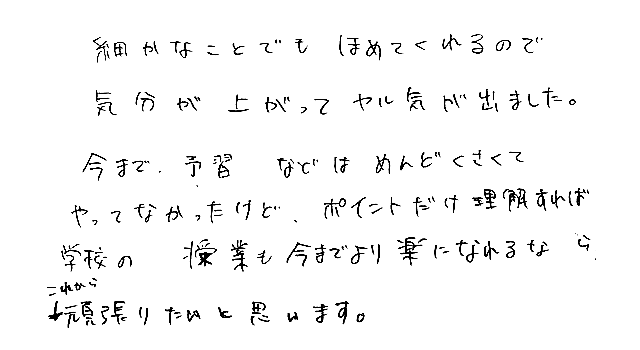 細かなことでも ほめてくれるので
気分が 上がって ヤル気が出ました。
今まで、予習 などは めんどくさくて
やってなかったけど、ポイントだけ理解すれば
学校の 授業も今までより楽になれるなら
これから
頑張りたいと思います。